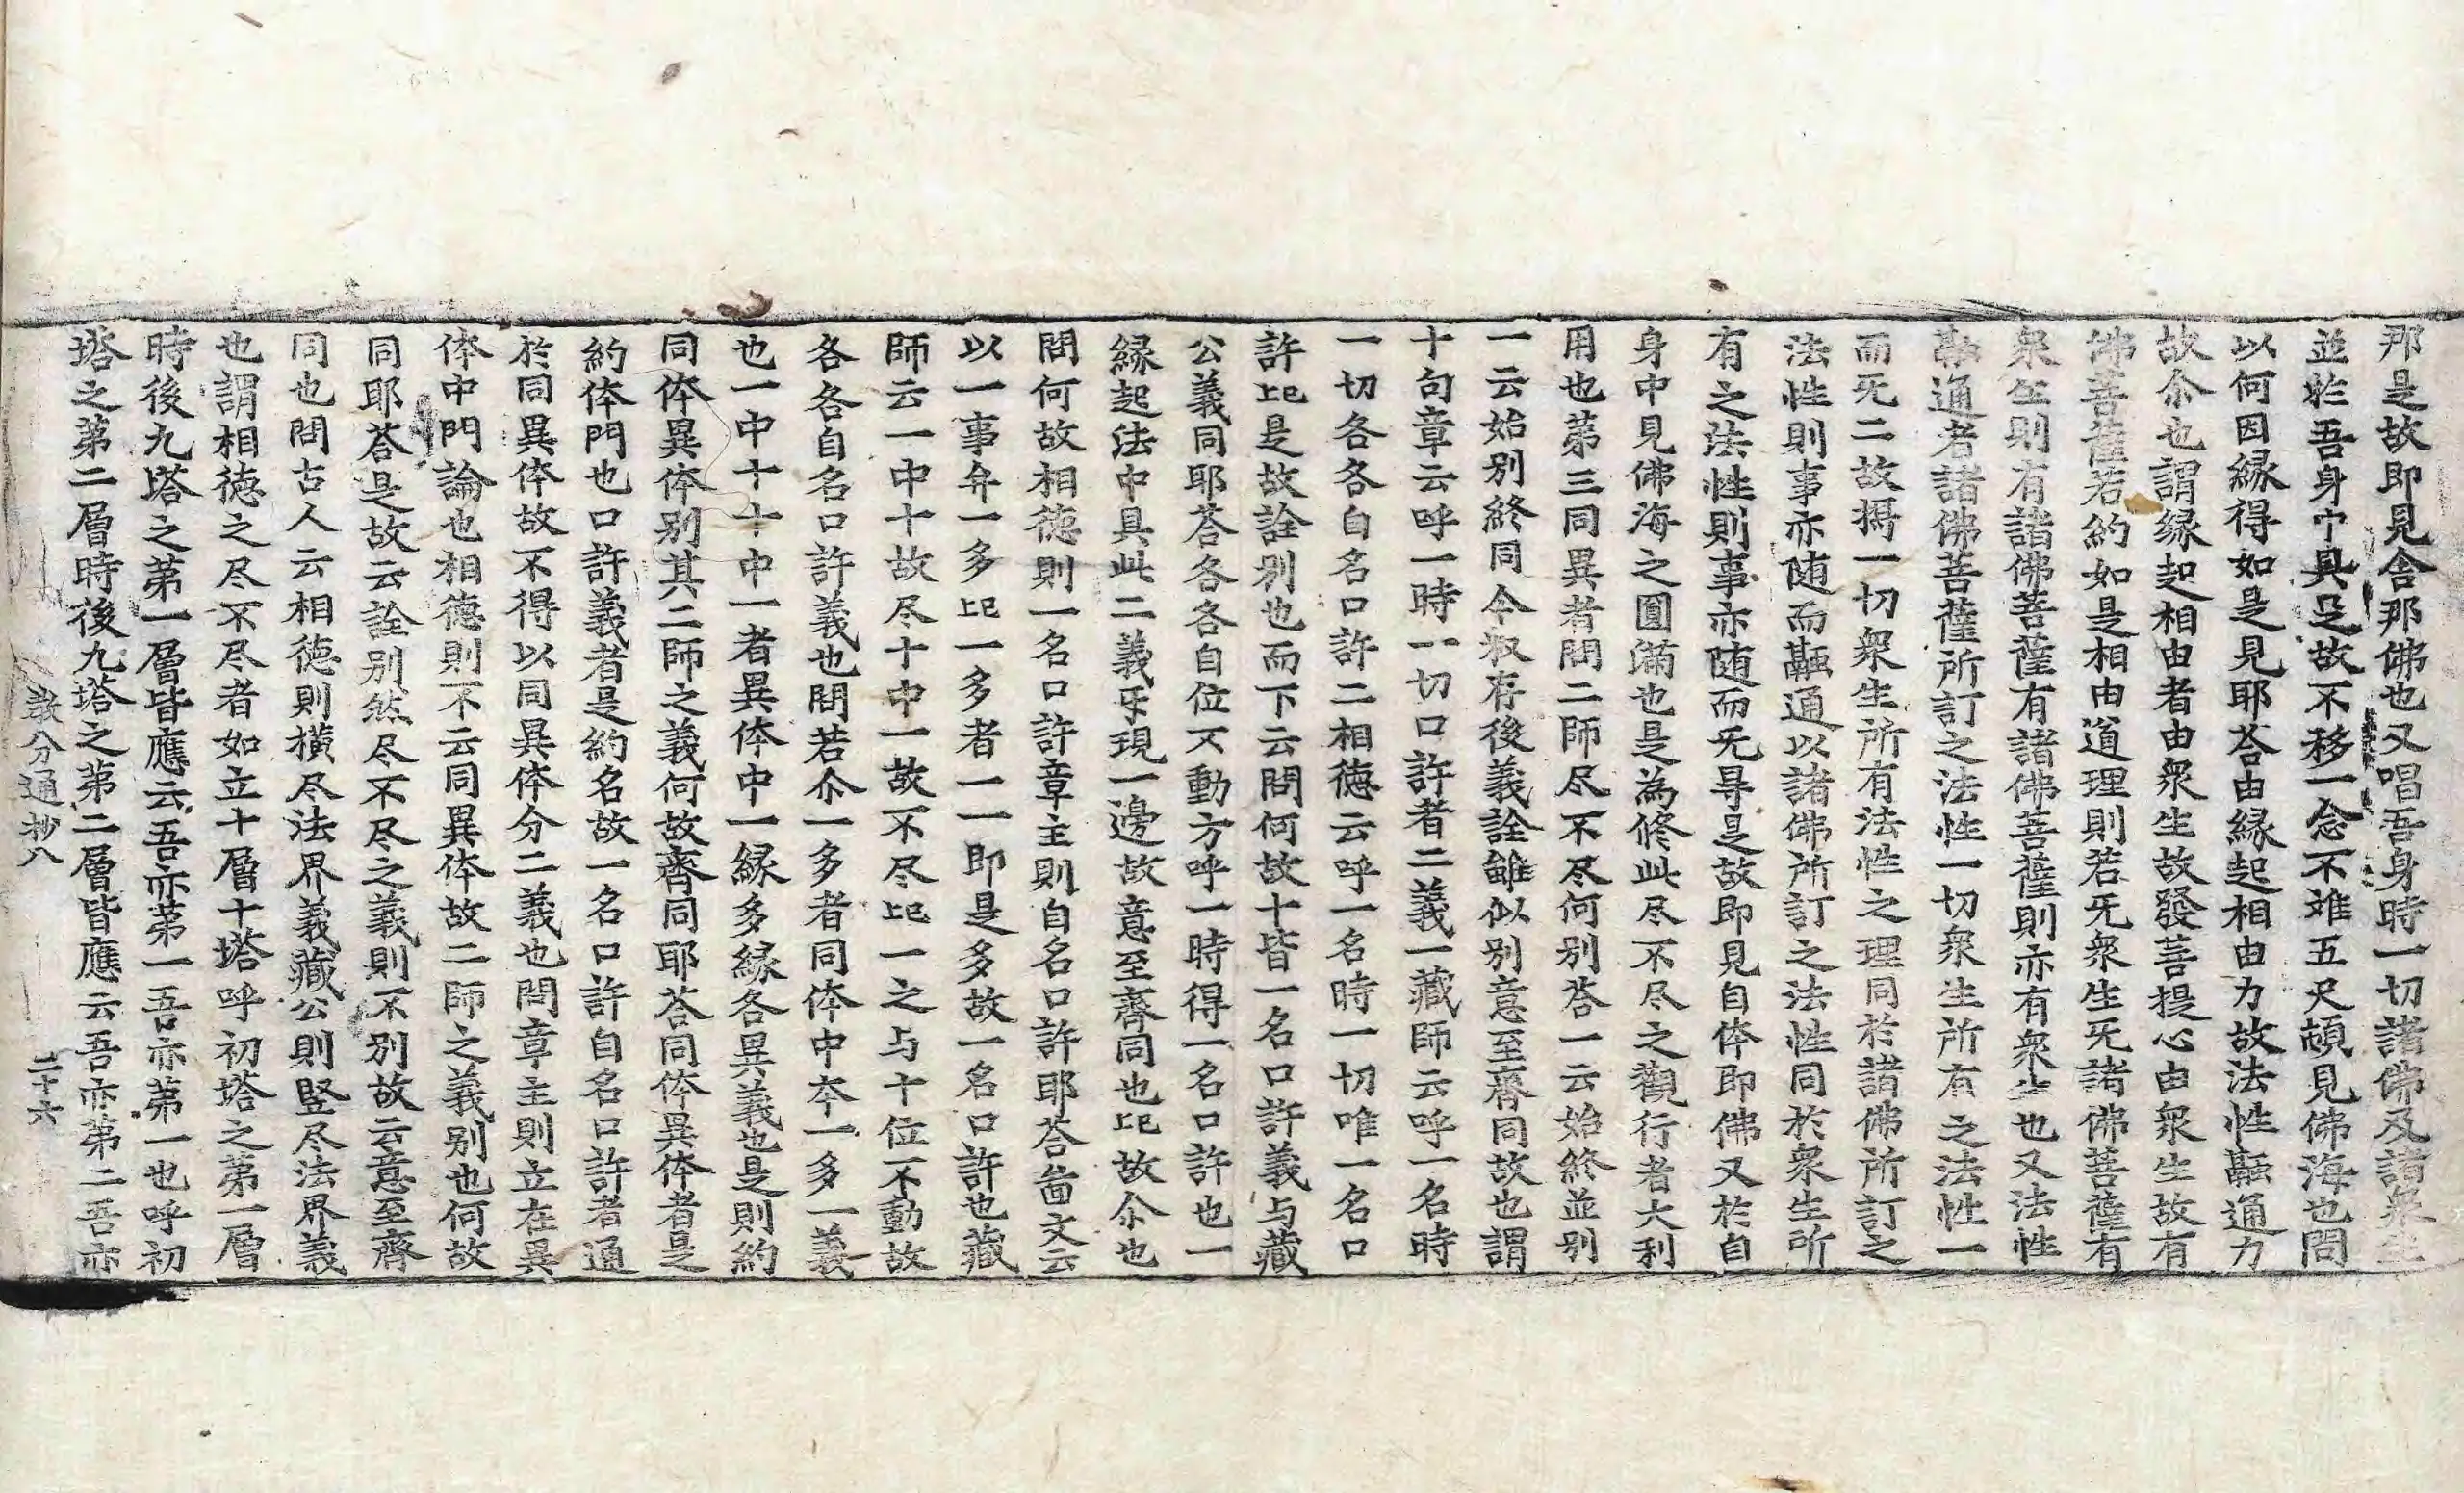 那是故即見舍那佛也又唱吾身時一切諸佛及諸衆生
並於吾身中具足故不移一念不难五尺頓見佛海也問
以何因縁得如是見耶荅由縁起相由力故法性融通力
故尒也謂縁起相由者由衆生故發菩提心由衆生故有
佛菩薩若約如是相由道理則若无衆生无諸佛菩薩有
衆生則有諸佛菩薩有諸佛菩薩則亦有衆生也又法性
融通者諸佛菩薩所訂之法性一切衆生所有之法性一
而无二故擧一切衆生所有法性之理同於諸佛所訂之
法性則事亦随而融通以諸佛所訂之法性同於衆生所
有之法性則事亦随而无㝵是故即見自体即佛又於自
身中見佛海之圓滿也是為修此尽不尽之觀行者大利
用也第三同異者問二師尽不尽何別荅一云始終並别
一云始别終同今叙存後義詮雖似别意至齊同故也謂
十句章云呼一時一切口許者二義一藏師云呼一名時
一切各各自名口許二相德云呼一名時一切唯一名口
許㠯是故詮别也而下云問何故十皆一名口許義与藏
公義同耶荅各各自位不動方呼一時得一名口許也一
縁起法中具此二義㸦現一邊故意至齊同也㠯故尒也
問何故相德則一名口許章主則自名口許耶荅啚文云
以一事弁一多㠯一多者一一即是多故一名口許也藏
師云一中十故尽十中一故不尽㠯一之与十位不動故
各各自名口許義也問若尒一多者同体中夲一多一義
也一中十十中一者異体中一縁多縁各異義也是則約
同体異体别其二師之義何故齊同耶荅同体異体者是
約体門也口許義者是約名故一名口許自名口許者通
於同異体故不得以同異体分二義也問章主則立在異
体中門論也相德則不云同異体故二師之義别也何故
同耶荅是故云詮别然尽不尽之義則不别故云意至齊
同也問古人云相德則橫尽法界義藏公則竪尽法界義
也謂相德之尽不尽者如立十層十塔呼初塔之第一層
時後九塔之第一層皆應云吾亦第一吾亦第一也呼初
塔之第二層時後九塔之第二層皆應云吾亦第二吾亦
教分通抄八 二十六